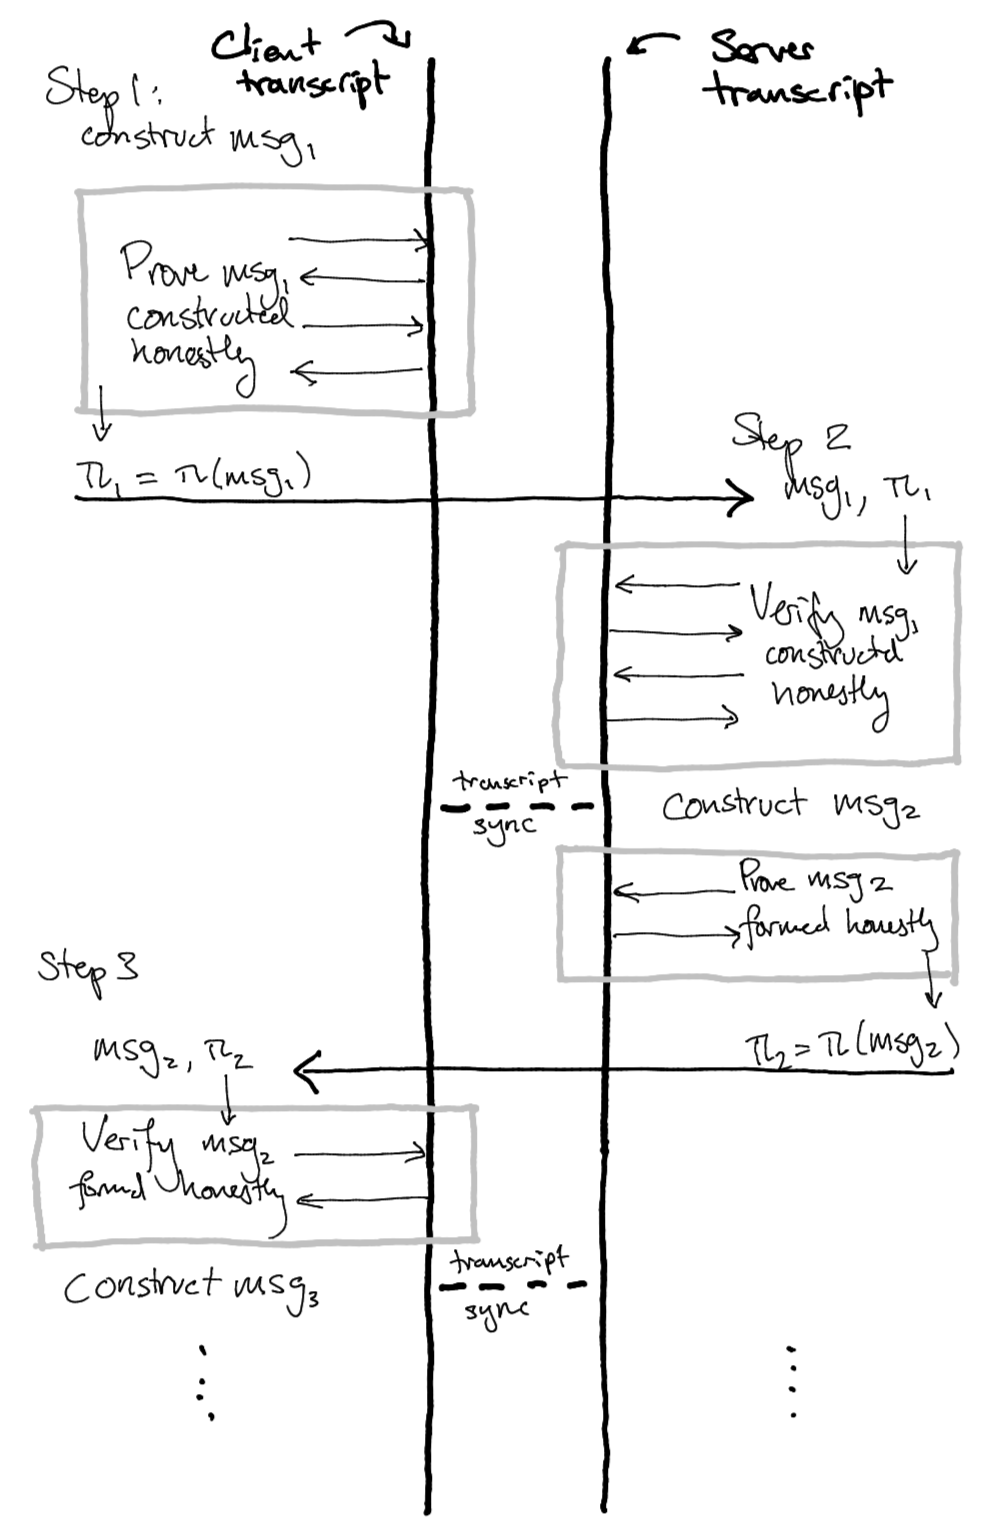 Client
transcript
Server
transcript
Step 1:
construct msg₁
Prove msg₁
constructed
honestly
π₁ = π(msg₁)
Step 2
msg₁, π₁
Verify msg₁
constructed
honestly
transcript
sync
Construct msg₂
Prove msg₂
formed honestly
π₂ = π(msg₂)
Step 3
msg₂, π₂
Verify msg₂
formed honestly
Construct msg₃
transcript
sync